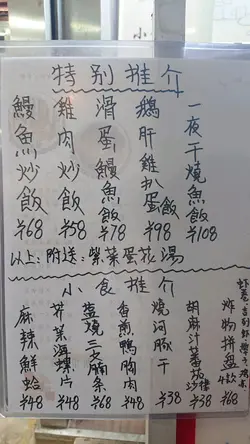 特别推介
鰻魚炒飯 ¥68
雞肉炒飯 ¥58
滑蛋鰻魚飯 ¥78
鵝肝雞扒蛋飯 ¥98
一夜干燒魚飯 ¥108
以上:附送:紫菜蛋花湯
小食推介
麻辣鮮蛤 ¥48
芥菜海螺片 ¥48
鹽燒三文腩条 ¥68
香煎鴨胸肉 ¥48
燒河豚干 ¥38
胡麻汁蕃茄沙律 ¥38
炸物拼盘 ¥68